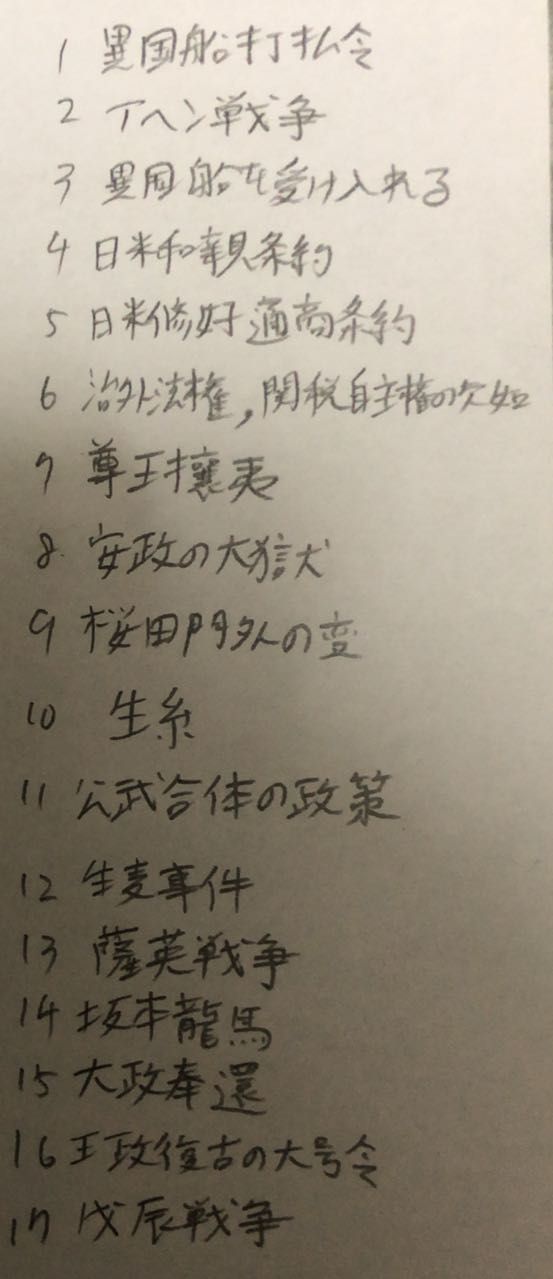 1 異国船打払令
2 アヘン戦争
3 異国船を受け入れる
4 日米和親条約
5 日米修好通商条約
6 治外法権,関税自主権の欠如
7 尊王攘夷
8. 安政の大獄
9 桜田門外の変
10 生糸
11 公武合体の政策
12 生麦事件
13 薩英戦争
14 坂本龍馬
15 大政奉還
16 王政復古の大号令
17 戊辰戦争